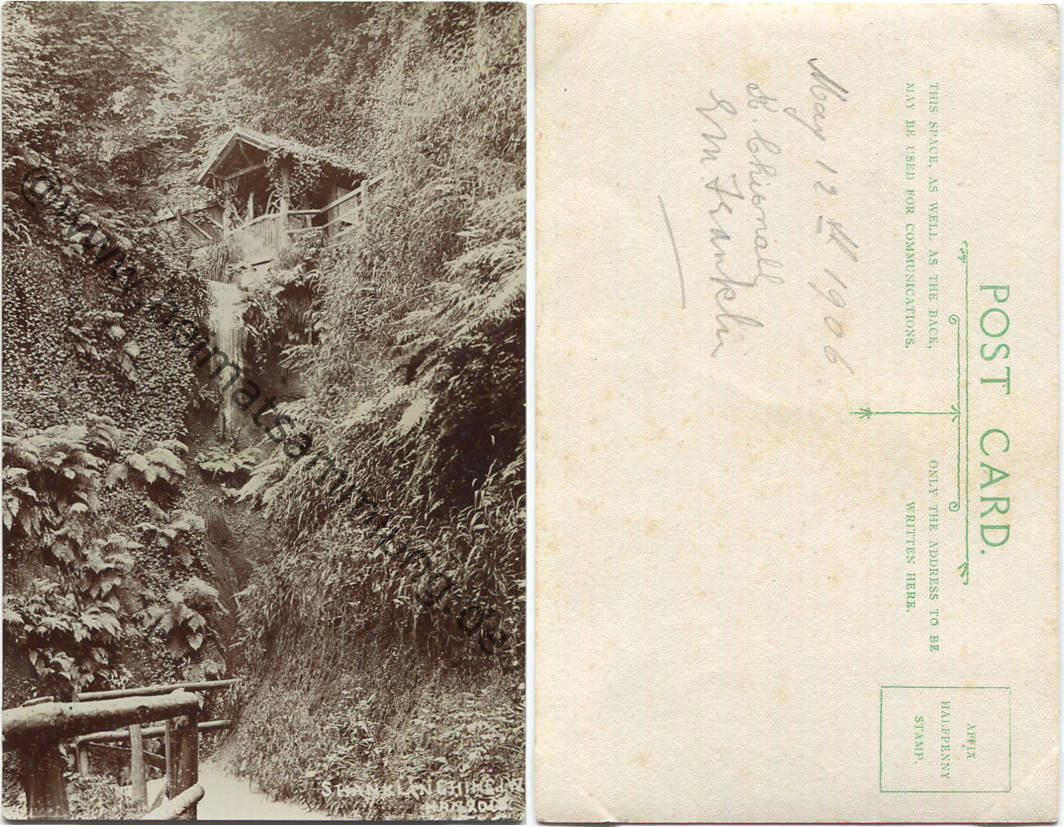 @www.heimatsammlung.de
SHANKLIN CHINE I.W.
POST CARD.
THIS SPACE, AS WELL AS THE BACK,
MAY BE USED FOR COMMUNICATIONS.
ONLY THE ADDRESS TO BE
WRITTEN HERE.
AFFIX
HALFPENNY
STAMP.
May 12th 1906
K. Chisnall